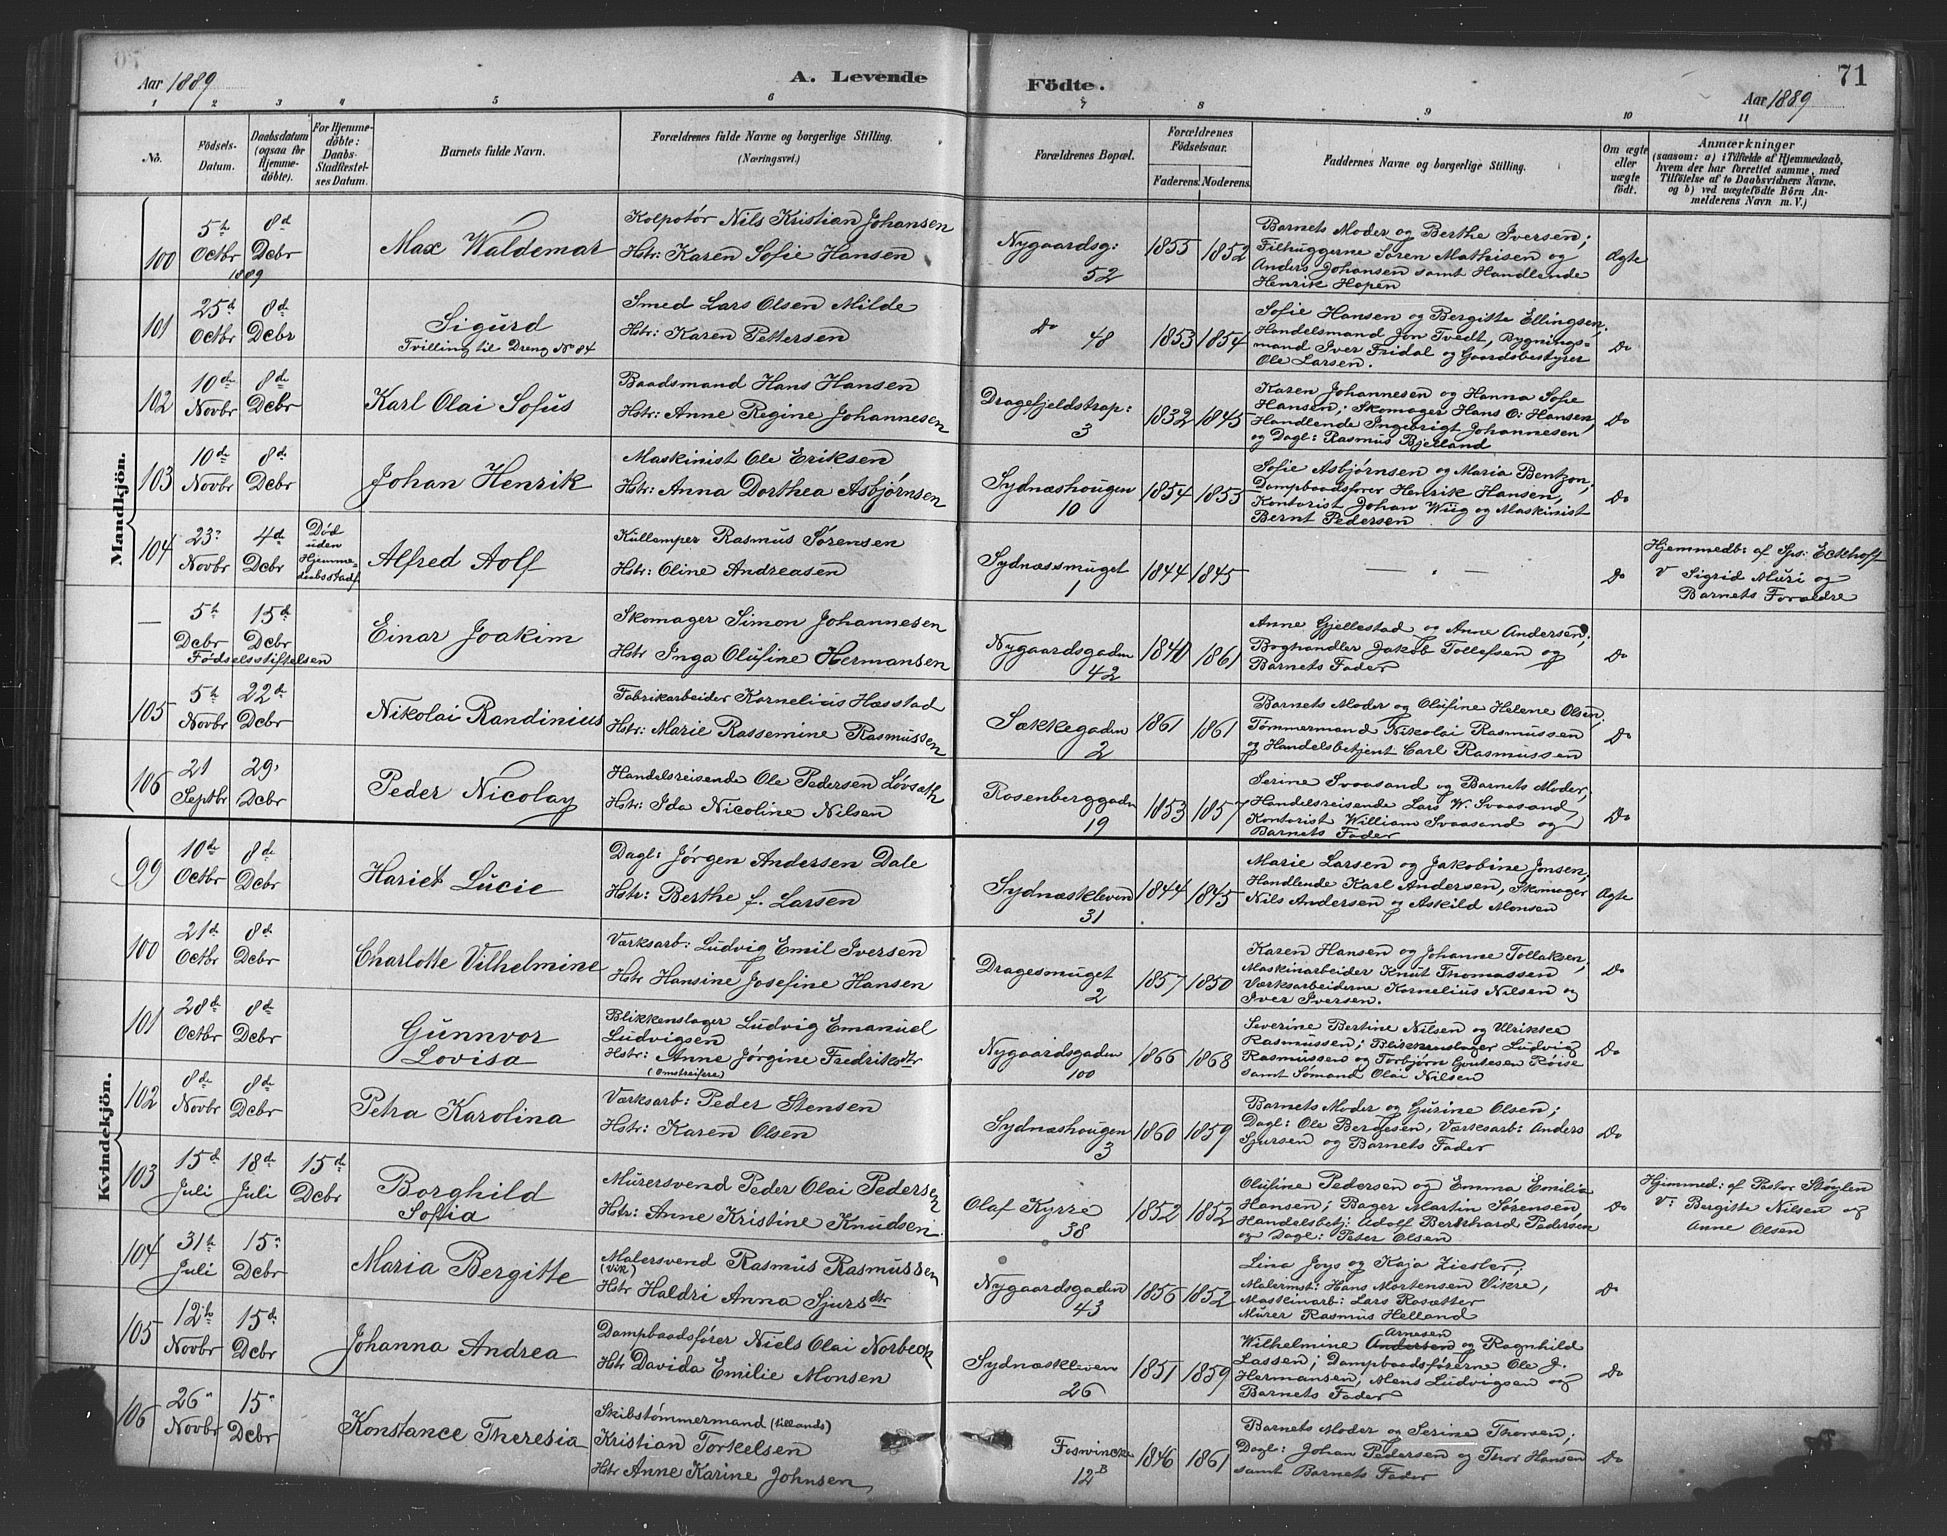 Aar 1889
A. Levende
Födte.
71
Aar 1889
1 2 3 4 5 6 7 8 9 10 11
No.
Födsels-
Datum.
Daabsdatum
(ogsaa för
Hjemme-
döbte).
For Hjemme-
döbte:
Daabs-
Stadfæstel-
ses Datum.
Barnets fulde Navn.
Forældrenes fulde Navne og borgerlige Stilling.
(Næringsvei.)
Forældrenes Bopæl.
Forældrenes
Födselsaar.
Faderens. Moderens.
Faddernes Navne og borgerlige Stilling.
Om ægte
eller
uægte
født.
Anmærkninger
(saasom: a) i Tilfælde af Hjemmedaab,
hvem der har forrettet samme, med
Tilföielse af to Daabsvidners Navne,
og b) ved uægtefödte Börn An-
melderens Navn m. V.)
Mandkjön.
100
5th Octbr 1889
8d Dcbr
Max Waldemar
Kolpotør Nils Kristian Johansen
Hstr: Karen Sofie Hansen
Nygaardsg:
52
1855 1852
Barnets Moder og Berthe Iversen;
Filhuggerne Søren Mathisen og
Anders Johansen samt Handlende
Henrik Hopen
Ægte
101
25d Octbr
8d Dcbr
Sigurd
Tvilling til Dreng No 84
Smed Lars Olsen Milde
Hstr: Karen Pettersen
Do
48
1853 1854
Sofie Hansen og Bergitte Ellingsen.
Handelsmand Jon Tvedt, Bygnings=
mand Iver Fridal og Gaardsbestyrer
Ole Larsen.
Do
102
10de Novbr
8de Dcbr
Karl Olai Sofus
Baadsmand Hans Hansen
Hstr: Anne Regine Johannesen
Dragefjeldstrap:
3
1832 1845
Karen Johannesen og Hanna Sofie
Hansen; Skomager Hans O: Hansen,
Handlende Ingebrigt Johannesen,
og Dagl: Rasmus Bjelland
Do
103
10de Novbr
8de Dcbr
Johan Henrik
Maskinist Ole Eriksen
Hstr: Anna Dorthea Asbjørnsen
Sydnæshougen
10
1854 1855
Sofie Asbjørnsen og Maria Bentzon;
Dampbaadsfører Henrik Hansen,
Kontorist Johan Wiig og Maskinist
Bernt Pedersen
Do
104
23' Novbr
4de Dcbr
Død
uden
Hjemme-
daabsstadf.
Alfred Aolf
Kullemper Rasmus Sørensen
Hstr: Oline Andreasen
Sydnæssmuget
1
1844 1845
— . —
Do
Hjemmedb: af Sps: Eckhoff
v Sigrid Muri og
Barnets Forældre
—
5th Dcbr
15de Dcbr
Fødselsstiftelsen
Einar Joakim
Skomager Simon Johannesen
Hstr Inga Olufine Hermansen
Nygaardsgaden
42
1840 1861
Anne Gjellestad og Anne Andersen;
Boghandler Jakob Tollefsen og
Barnets Fader
Do
105
5th Novbr
22de Dcbr
Nikolai Randinius
Fabrikarbeider Kornelius Hæstad
Hstr: Marie Rassemine Rasmussen
Sækkegaden
2
1861 1861
Barnets Moder og Olufine Helene Olsen;
Tømmermand Nikolai Rasmussen
og Handelsbetjent Carl Rasmussen
Do
106
21 Septbr
29' Dcbr
Peder Nicolay
Handelsreisende Ole Pedersen Løvseth
Hstr: Ida Nicoline Nilsen
Rosenberggadn
19
1853 1857
Serine Svaasand og Barnets Moder;
Handelsreisende Lars W. Svaasand,
Kontorist William Svaasand og
Barnets Fader
Do
Kvindekjön.
99
10de Octbr
8de Dcbr
Hariet Lucie
Dagl: Jørgen Andersen Dale
Hstr: Berthe f. Larsen
Sydnæskleven
31
1844 1845
Marie Larsen og Jakobine Jonsen,
Handlende Karl Andersen, Skomager
Nils Andersen og Askild Monsen
Ægte
100
21de Octbr
8de Dcbr
Charlotte Vilhelmine
Værksarb: Ludvig Emil Iversen
Hstr Hansine Josefine Hansen
Dragesmuget
2
1857 1850
Karen Hansen og Johanne Tollaksen,
Maskinarbeider Knut Thomassen
Værksarbeiderne Kornelius Nilsen og
Iver Iversen.
Do
101
28de Octbr
8de Dcbr
Gunnvor
Lovisa
Blikkenslager Ludvig Emanuel
Ludvigsen
Hstr: Anne Jørgine Fredriksdtr
(Omstreifere)
Nygaardsgaden
100
1866 1868
Severine Bertine Nilsen og Ulrikke
Rasmussen; Blikkenslager Ludvig
Rasmussen og Torbjørn Goutesen Røise
samt Sømand Olai Nilsen
Do
102
8de Novbr
8de Dcbr
Petra Karolina
Værksarb: Peder Stensen
Hstr: Karen Olsen
Sydnæshougen
3
1860 1859
Barnets Moder og Gurine Olsen;
Dagl: Ole Bergesen, Værksarb: Anders
Sjursen og Barnets Fader
Do
103
15de Juli
18de Juli
15de Dcbr
Borghild
Sofia
Murersvend Peder Olai Pedersen
Hstr: Anne Kristine Knudsen
Olaf Kyrre
38
1852 1852
Olufine Pedersen og Emma Emilia
Hansen; Bager Martin Sørensen,
Handelsbetj: Adolf Bernhard Pedersen
og Dagl: Peter Olsen
Do
Hjemmed: af Pastor Støylen
v: Bergitte Nilsen og
Anne Olsen
104
31th Juli
15' Dcbr
Maria Bergitte
Malersvend Rasmus Rasmussen
(Vik)
Hstr Haldri Anna Sjursdtr
Nygaardsgaden
43
1856 1852
Lina Joys og Kaja Ziesler;
Malermst: Hans Mortensen Vikre,
Maskinarb: Lars Rosætter
Murer Rasmus Helland
Do
105
12th Novbr
15de Dcbr
Johanna Andrea
Dampbaadsfører Niels Olai Norbeck
Hstr Davida Emilie Monsen
Sydnæskleven
26
1851 1859
Arnesen
Wilhelmine Andersen og Ragnhild
Lassen; Dampbaadsførerne Ole J.
Hermansen, Mens Ludvigsen og
Barnets Fader
Do
106
26" Novbr
15" Dcbr
Konstance Theresia
Skibstømmermand (tillands)
Kristian Torkelsen
Hstr Anne Karine Johnsen
Foswincke
12B
1846 1861
Barnets Moder og Serine Thorsen;
Dagl: Johan Pedersen og Thor Hansen
samt Barnets Fader
Do